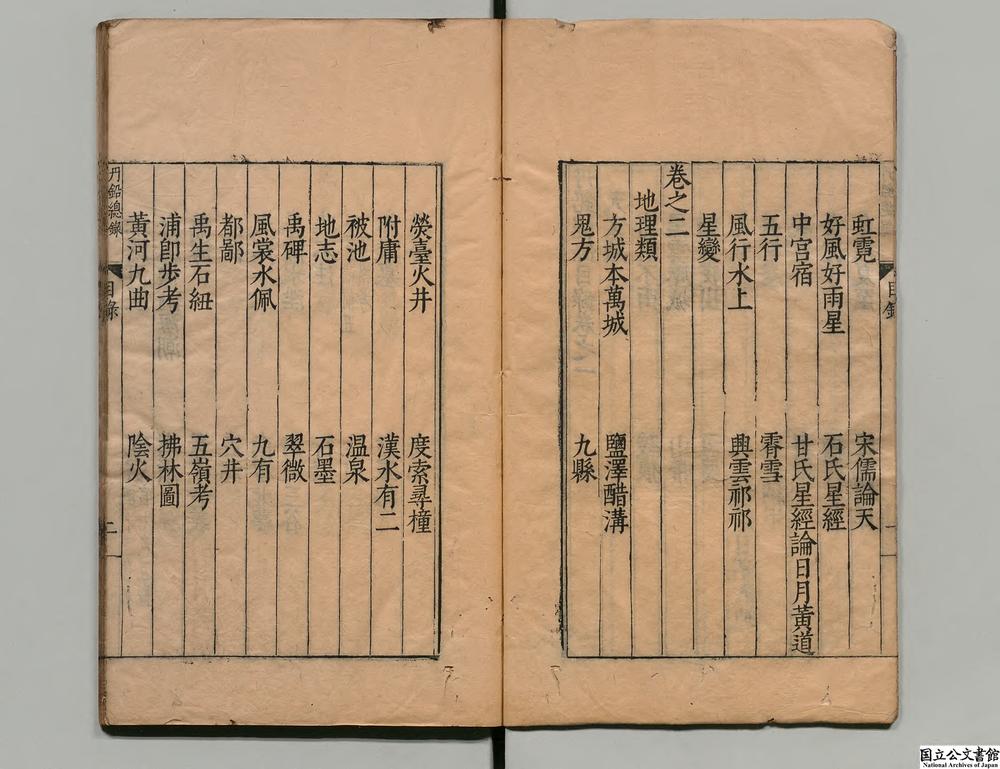 虹霓 宋儒論天
好風好雨星 石氏星經
中宮宿 甘氏星經論日月黃道
五行 霄雪
風行水上 興雲祁祁
星變
卷之二
地理類
方城本萬城 鹽澤醋溝
鬼方 九縣
熒臺火井 度索尋橦
附庸 漢水有二
被池 温泉
地志 石墨
禹碑 翠微
風裳水佩 九有
都鄙 穴井
禹生石紐 五嶺考
浦卽步考 拂林圖
黃河九曲 陰火
丹鉛總錄 目錄 二
目錄 一
国立公文書館
National Archives of Japan